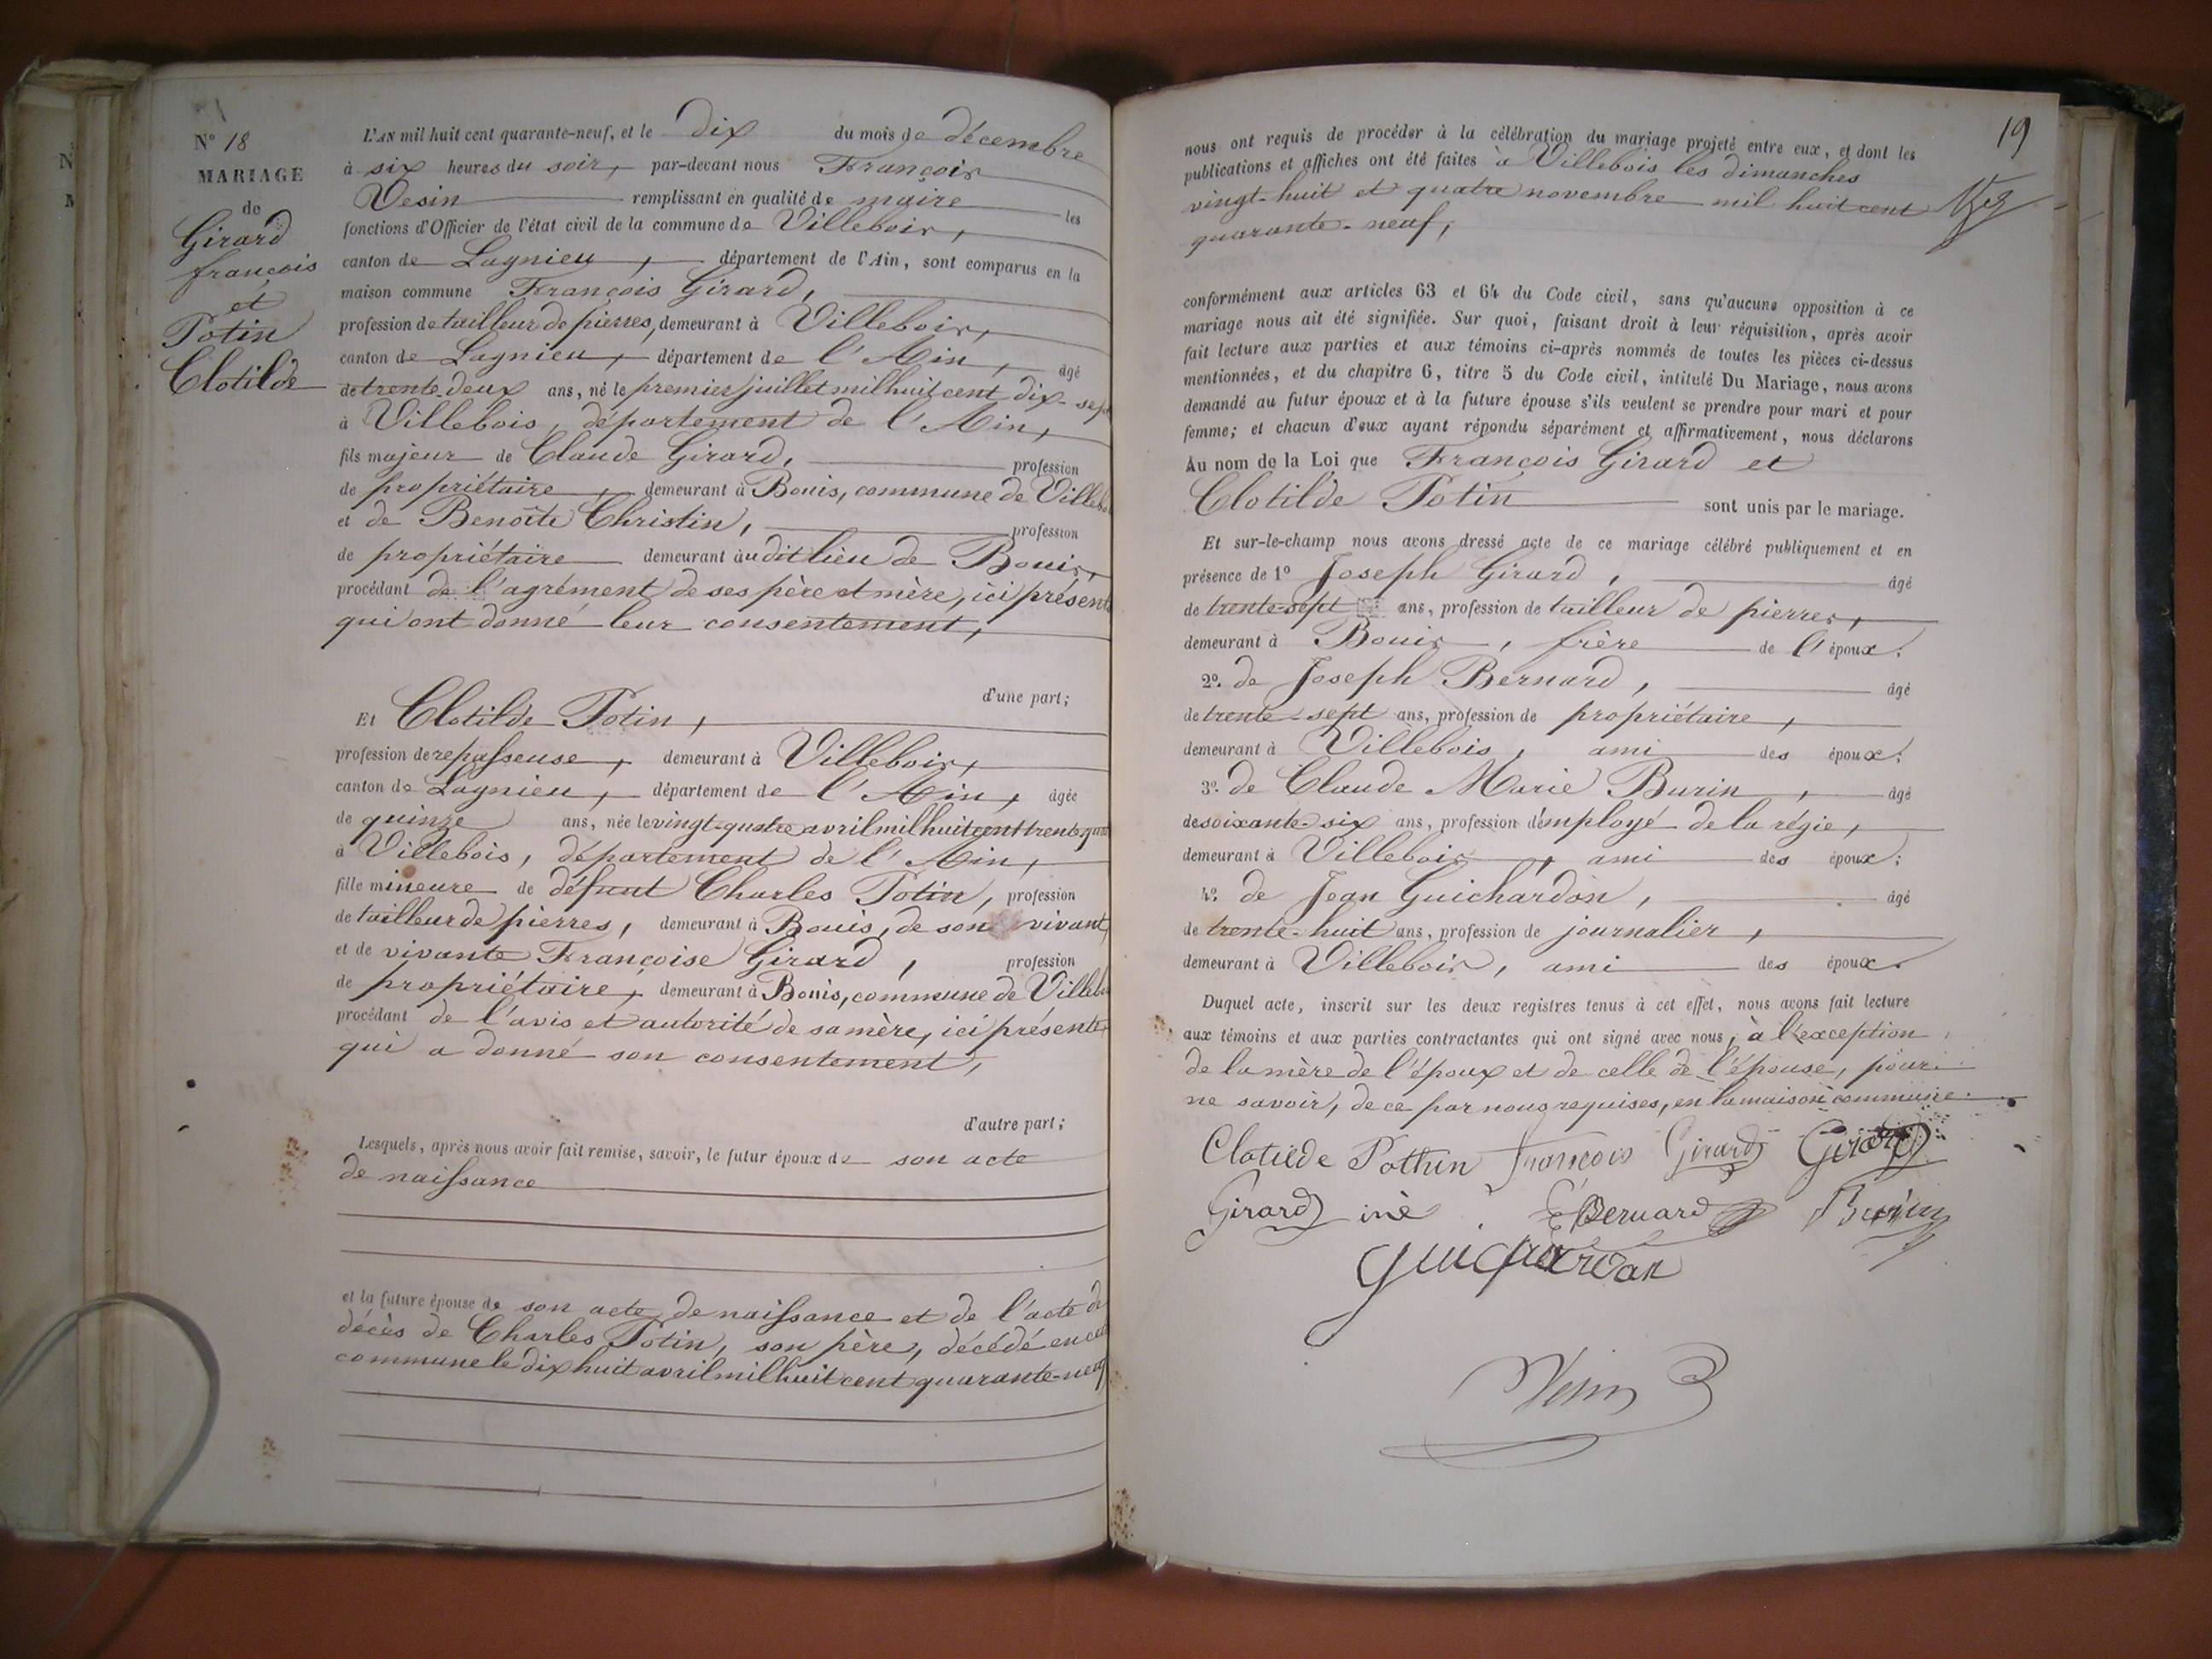 N° 18
MARIAGE
de
Girard
françois
et
Potin
Clotilde
L'AN mil huit cent quarante-neuf, et le dix du mois de décembre
à six heures du soir, par-devant nous François
Vesin remplissant en qualité de maire les
fonctions d'Officier de l'état civil de la commune de Villebois,
canton de Lagnieu, département de l'Ain, sont comparus en la
maison commune François Girard,
profession de tailleur de pierres, demeurant à Villebois,
canton de Lagnieu, département de l'Ain, âgé
de trente-deux ans, né le premier juillet mil huit cent dix-sept
à Villebois, département de l'Ain,
fils majeur de Claude Girard, profession
de propriétaire, demeurant à Bouis, commune de Villebois
et de Benoîte Christin, profession
de propriétaire demeurant audit lieu de Bouis,
procédant de l'agrément de ses père et mère, ici présents
qui ont donné leur consentement,
d'une part;
Et Clotilde Potin,
profession de repasseuse, demeurant à Villebois,
canton de Lagnieu, département de l'Ain, âgée
de quinze ans, née le vingt-quatre avril mil huit cent trente-quatre
à Villebois, département de l'Ain,
fille mineure de défunt Charles Potin, profession
de tailleur de pierres, demeurant à Bouis, de son vivant,
et de vivante Françoise Girard, profession
de propriétaire, demeurant à Bouis, commune de Villebois
procédant de l'avis et autorité de sa mère, ici présente,
qui a donné son consentement,
d'autre part;
Lesquels, après nous avoir fait remise, savoir, le futur époux de son acte
de naissance
et la future épouse de son acte de naissance et de l'acte de
décès de Charles Potin, son père, décédé en cette
commune le dix huit avril mil huit cent quarante-neuf
19
nous ont requis de procéder à la célébration du mariage projeté entre eux, et dont les
publications et affiches ont été faites à Villebois les dimanches
vingt-huit et quatre novembre mil huit cent
quarante-neuf,
conformément aux articles 63 et 64 du Code civil, sans qu'aucune opposition à ce
mariage nous ait été signifiée. Sur quoi, faisant droit à leur réquisition, après avoir
fait lecture aux parties et aux témoins ci-après nommés de toutes les pièces ci-dessus
mentionnées, et du chapitre 6, titre 5 du Code civil, intitulé Du Mariage, nous avons
demandé au futur époux et à la future épouse s'ils veulent se prendre pour mari et pour
femme; et chacun d'eux ayant répondu séparément et affirmativement, nous déclarons
Au nom de la Loi que François Girard et
Clotilde Potin sont unis par le mariage.
Et sur-le-champ nous avons dressé acte de ce mariage célébré publiquement et en
présence de 1° Joseph Girard, âgé
de trente-sept ans, profession de tailleur de pierres,
demeurant à Bouis, frère de l'époux.
2°. de Joseph Bernard, âgé
de trente-sept ans, profession de propriétaire,
demeurant à Villebois, ami des époux;
3°. de Claude Marie Burin, âgé
de soixante-six ans, profession d'employé de la régie,
demeurant à Villebois, ami des époux;
4°. de Jean Guichardon, âgé
de trente-huit ans, profession de journalier,
demeurant à Villebois, ami des époux.
Duquel acte, inscrit sur les deux registres tenus à cet effet, nous avons fait lecture
aux témoins et aux parties contractantes qui ont signé avec nous, à l'exception
de la mère de l'époux et de celle de l'épouse, pour
ne savoir, de ce par nous requises, en la maison commune.
Clotilde Pothin François Girard Girard
Girard inè Bernard Burin
guichardan
Vesin